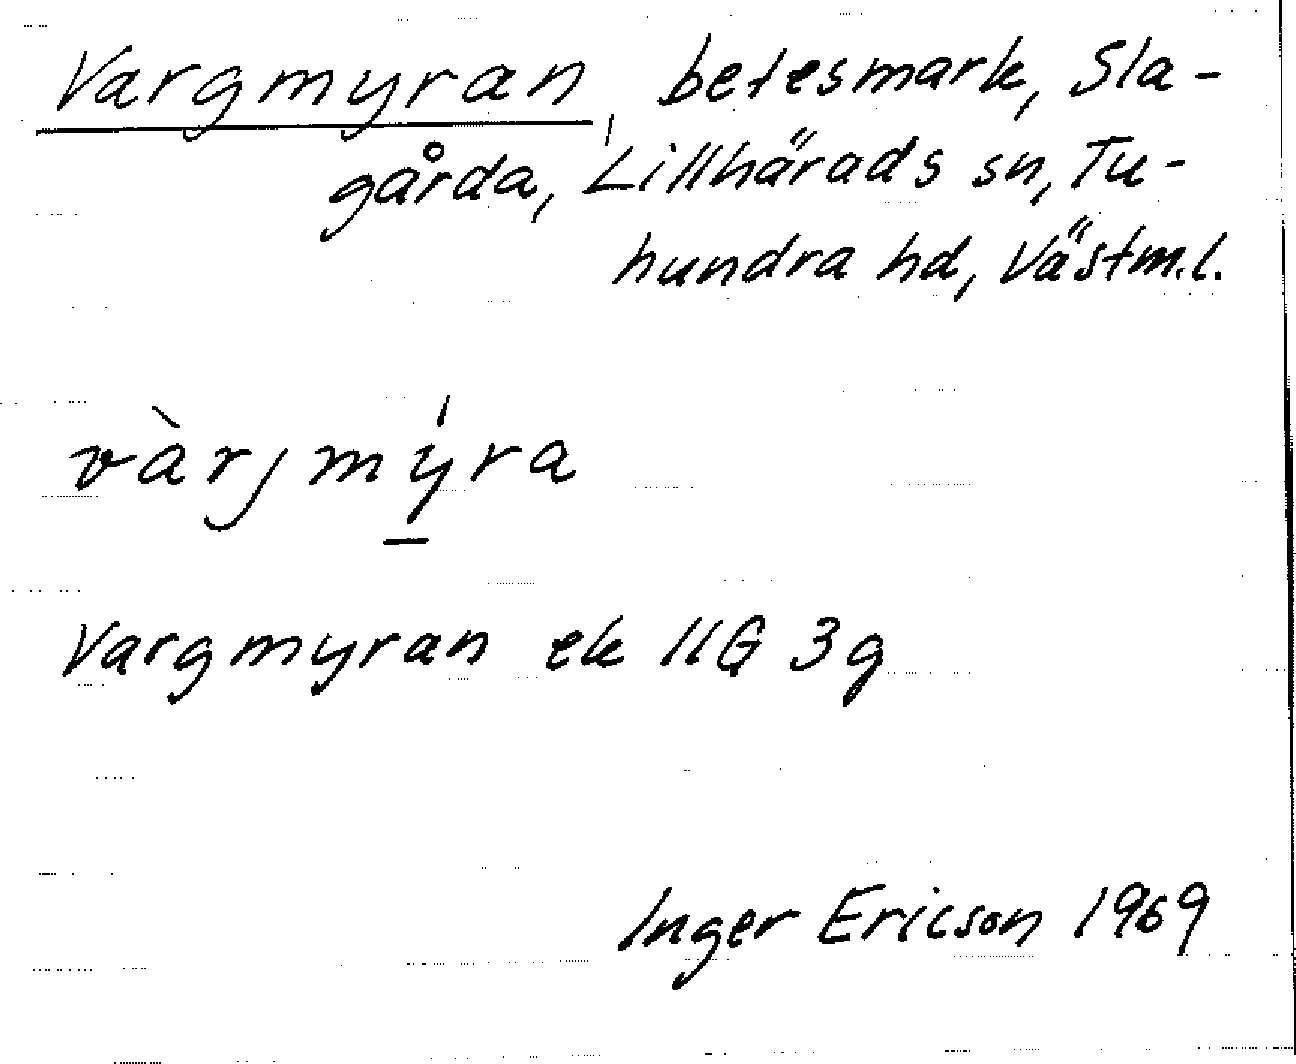 Vargmyran, betesmark, Sla-
gårda, Lillhärads sn, Tu-
hundra hd, Västm.l.
vàrjmý̲ra
Vargmyran ek 11G 3g
Inger Ericson 1969